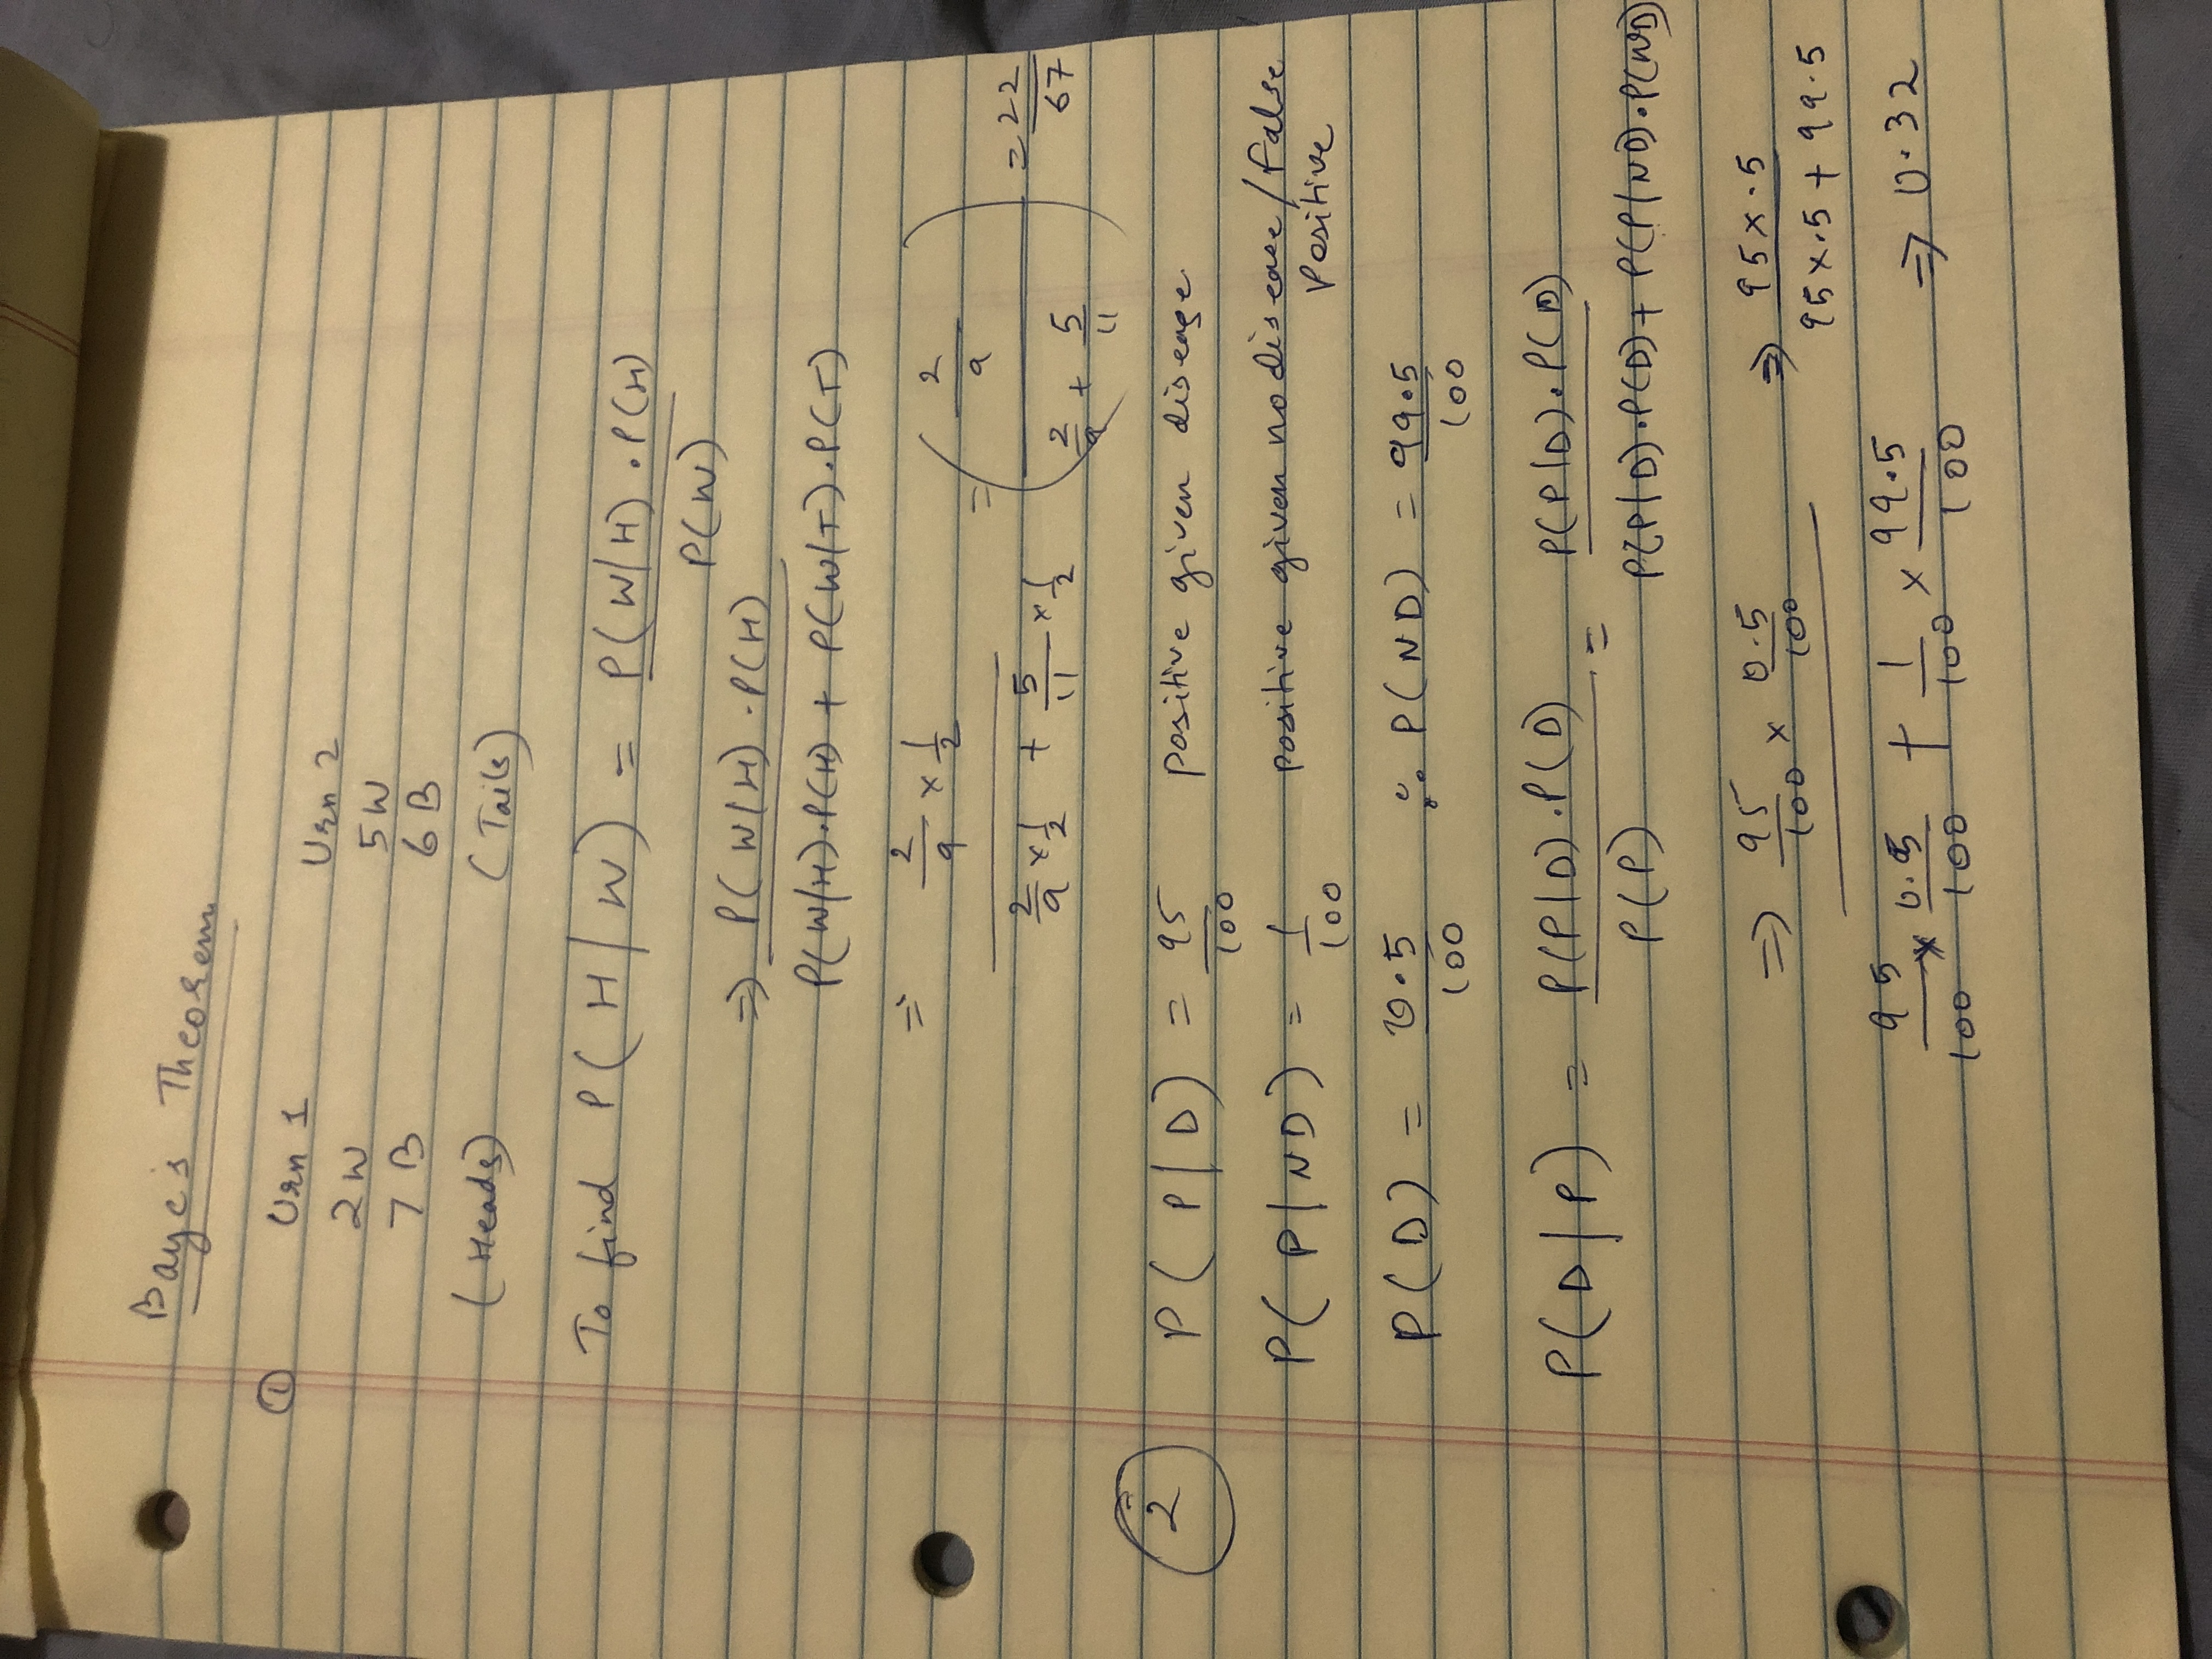 Baye's Theorem
① Urn 1 Urn 2
2W 5W
7B 6B
(Heads) (Tails)
To find P(H/W) = P(W/H).P(H)
P(W)
⇒ P(W/H).P(H)
P(W/H).P(H) + P(W/T).P(T)
⇒ 2/9 × 1/2 = (2/9
2/9 × 1/2 + 5/11 × 1/2 2/9 + 5/11) = 22/67
② P(P/D) = 95/100 positive given disease
P(P/ND) = 1/100 positive given no disease/False
Positive
P(D) = 0.5/100 ∴ P(ND) = 99.5/100
P(D/P) = P(P/D).P(D) = P(P/D).P(D)
P(P) P(P/D).P(D) + P(P/ND).P(ND)
⇒ 95/100 × 0.5/100 ⇒ 95×.5
95×.5 + 99.5
95/100 × 0.5/100 + 1/100 × 99.5/100 ⇒ 0.32